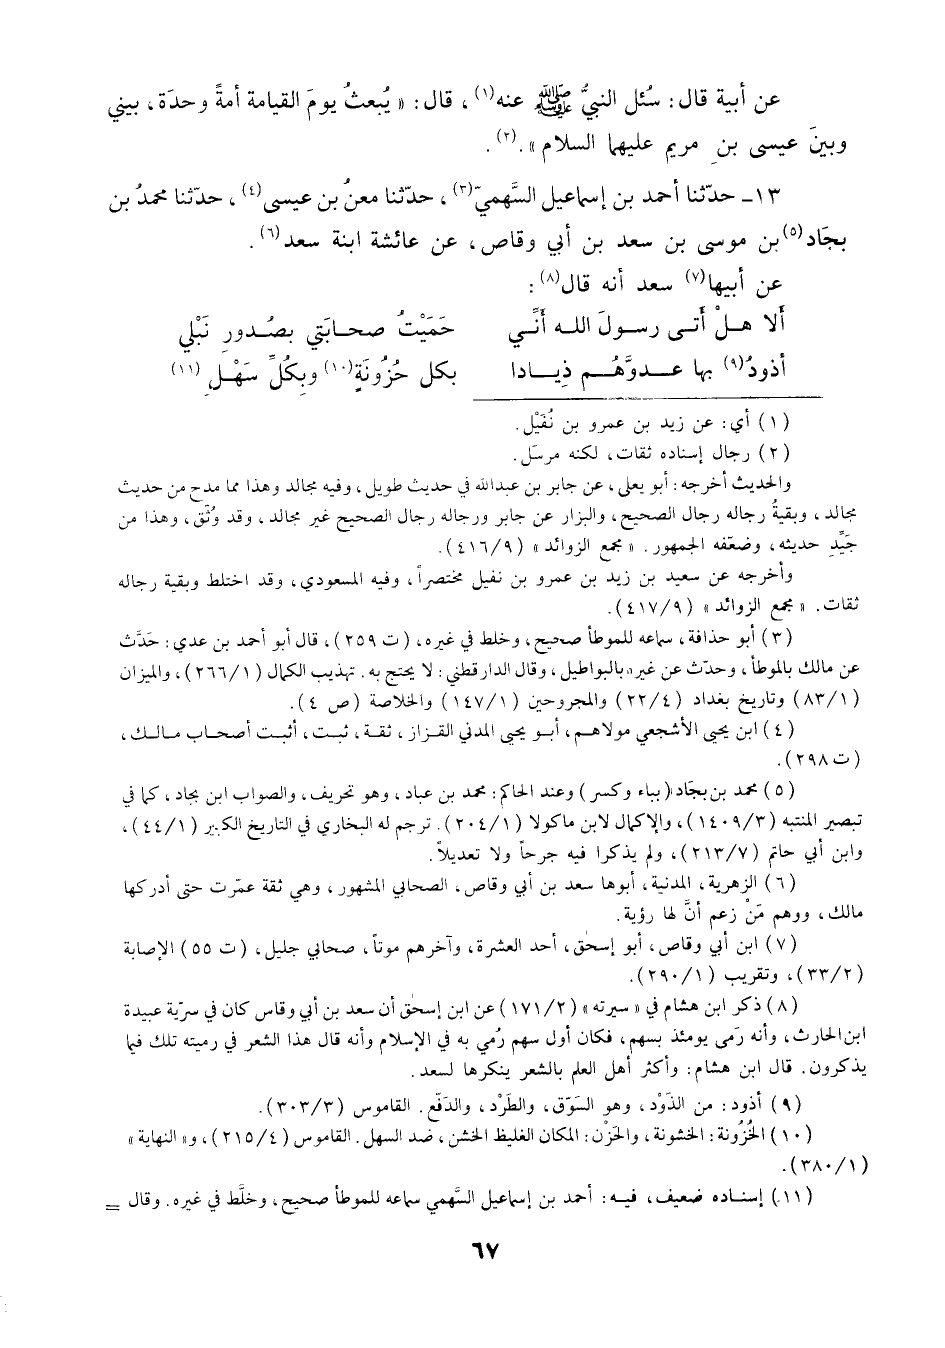 عن أبية قال: سُئل النبيُّ ﷺ عنه(١)، قال: «يُبعثُ يومَ القيامة أمةً وحدَة، بيني
وبينَ عيسى بنِ مريم عليهما السلام».(٢).
١٣ـ حدّثنا أحمد بن إسماعيل السَّهميّ(٣)، حدّثنا معنُ بن عيسى(٤)، حدّثنا محمدُ بن
بجَاد(٥) بن موسى بن سعد بن أبي وقاص، عن عائشة ابنة سعد(٦).
عن أبيها(٧) سعد أنه قال(٨):
أَلا هـلْ أَتـى رسـولَ اللـه أنّـي حَمَيْتُ صحـابَتي بصُـدورِ نَبْلي
أذودُ(٩) بها عـدوَّهُـم ذِيـادا بكل حُزُونَةٍ(١٠) وبِكُلِّ سَهْلِ(١١)
(١) أي: عن زيد بن عمرو بن نُفَيْل.
(٢) رجال إسناده ثقات، لكنه مرسَل.
والحديث أخرجه: أبو يعلى، عن جابر بن عبدالله في حديث طويل، وفيه مجالد وهذا مما مدح من حديث
مجالد، وبقيةُ رجاله رجال الصحيح، والبزار عن جابر ورجاله رجال الصحيح غير مجالد، وقد وُثِّق، وهذا من
جَيِّدِ حديثه، وضعّفه الجمهور. «مجمع الزوائد» (٤١٦/٩).
وأخرجه عن سعيد بن زيد بن عمرو بن نفيل مختصراً، وفيه المسعودي، وقد اختلط وبقية رجاله
ثقات. «مجمع الزوائد» (٤١٧/٩).
(٣) أبو حذافة، سماعه للموطأ صحيح، وخلط في غيره، (ت ٢٥٩)، قال أبو أحمد بن عدي: حَدَّث
عن مالك بالموطأ، وحدّث عن غيره بالبواطيل، وقال الدارقطني: لا يحتج به. تهذيب الكمال (٢٦٦/١)، والميزان
(٨٣/١) وتاريخ بغداد (٢٢/٤) والمجروحين (١٤٧/١) والخلاصة (ص ٤).
(٤) ابن يحيى الأشجعي مولاهـم، أبـو يحيى المدني القـزاز، ثقـة، ثبـت، أثبـت أصحـاب مـالـك،
(ت ٢٩٨).
(٥) محمد بن بجَاد (بباء وكسر) وعند الحاكم: محمد بن عباد، وهو تحريف، والصواب ابن بجاد، كما في
تبصير المنتبه (١٤٠٩/٣)، والإكمال لابن ماكولا (٢٠٤/١). ترجم له البخاري في التاريخ الكبير (٤٤/١)،
وابن أبي حاتم (٢١٣/٧)، ولم يذكرا فيه جرحاً ولا تعديلاً.
(٦) الزهرية، المدنية، أبوها سعد بن أبي وقاص، الصحابي المشهور، وهي ثقة عمّرت حتى أدركها
مالك، ووهم مَنْ زعم أنَّ لها رؤية.
(٧) ابن أبي وقاص، أبو إسحٰق، أحد العشرة، وآخرهم موتاً، صحابي جليل، (ت ٥٥) الإصابة
(٣٣/٢)، وتقريب (٢٩٠/١).
(٨) ذكر ابن هشام في «سيرته» (١٧١/٢) عن ابن إسحٰق أن سعد بن أبي وقاس كان في سريّة عبيدة
ابن الحارث، وأنه رَمى يومئذ بسهم، فكان أول سهم رُمي به في الإسلام وأنه قال هذا الشعر في رميته تلك فيما
يذكرون. قال ابن هشام: وأكثر أهل العلم بالشعر ينكرها لسعد.
(٩) أذود: من الذَوْد، وهو السَوّق، والطَرْد، والدَفْع. القاموس (٣٠٣/٣).
(١٠) الحُزُونة: الخشونة، والحَزْن: المكان الغليظ الخشن، ضد السهل. القاموس (٢١٥/٤)، و«النهاية»
(٣٨٠/١).
(١١) إسنـاده ضعيف، فيـه: أحمد بن إسماعيل السَّهمي سماعه للموطأ صحيح، وخلَّط في غيره. وقال =
٦٧